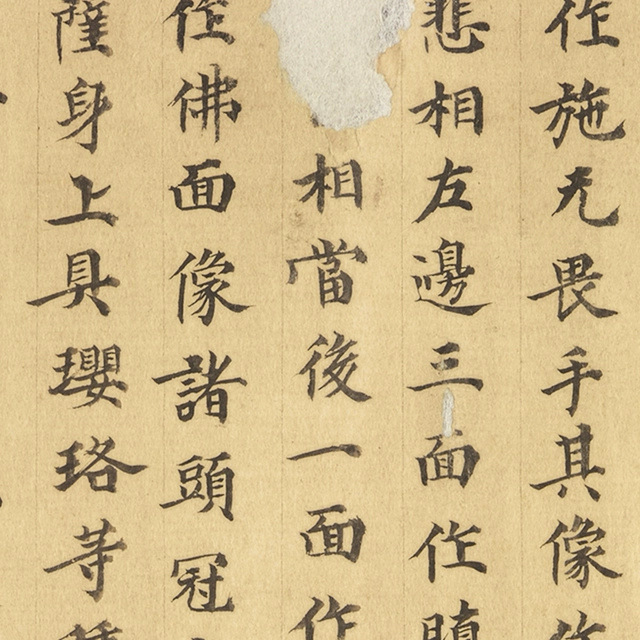 作施无畏手其像作
悲相左邊三面作瞋
相當後一面作
作佛面像諸頭冠
薩身上具瓔珞等種